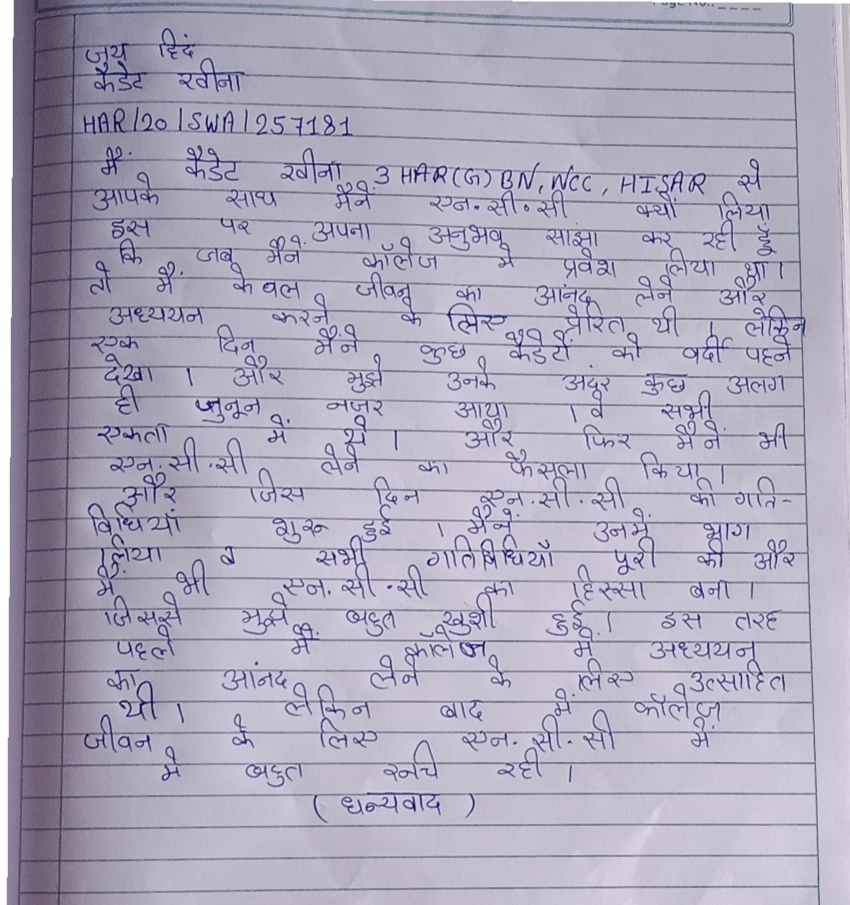 Page No.: ____
जय हिंद
कैडेट रवीना
HAR/20/SWA/257181
मैं कैडेट रवीना 3 HAR(G) BN, NCC, HISAR से
आपके साथ मैनें एन.सी.सी क्यों लिया
इस पर अपना अनुभव सांझा कर रही हूँ
कि जब मैनें कॉलेज में प्रवेश लिया था।
तो मैं केवल जीवन का आंनद लेने और
अध्ययन करने के लिए प्रेरित थी । लेकिन
एक दिन मैंने कुछ कैडेटों को वर्दी पहने
देखा । और मुझे उनके अंदर कुछ अलग
ही जुनून नजर आया । वे सभी
एकता में थे। और फिर मैनें भी
एन.सी.सी लेने का फैसला किया।
और जिस दिन एन.सी.सी की गति-
विधियां शुरू हुई । मैनें उनमें भाग
लिया व सभी गतिविधियाँ पूरी की और
मैं भी एन.सी.सी का हिस्सा बना ।
जिससे मुझे बहुत खुशी हुई। इस तरह
पहले मैं कॉलेज में अध्ययन
का आंनद लेने के लिए उत्साहित
थी। लेकिन बाद में कॉलेज
जीवन के लिए एन.सी.सी में
मे बहुत रूचि रही ।
( धन्यवाद )